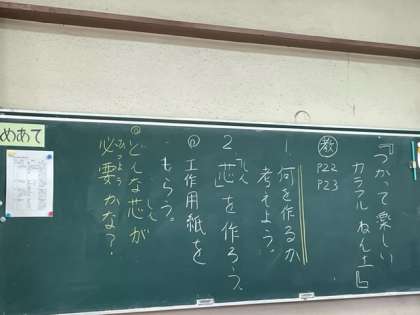 『つかって楽しい
カラフルねん土』
教
P22
P23
1.何を作るか
考えよう。
2「芯」を作ろう。
しん
◎工作用紙を
もらう。
◎どんな芯が
しん
必要かな?
ひつよう
めあて